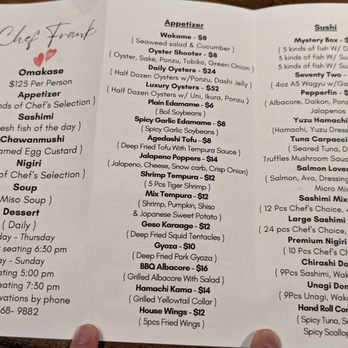 Chef Frank
Omakase
$125 Per Person
Appetizer
nds of Chef's Selection )
Sashimi
esh fish of the day )
Chawanmushi
amed Egg Custard )
Nigiri
of Chef's Selection )
Soup
Miso Soup )
Dessert
( Daily )
day - Thursday
seating 6:30 pm
ay - Sunday
ating 5:00 pm
ating 7:30 pm
vations by phone
68- 9882
Appetizer
Wakame - $8
( Seaweed salad & Cucumber )
Oyster Shooter - $8
( Oyster, Sake, Ponzu, Tobiko, Green Onion )
Daily Oysters - $24
( Half Dozen Oysters w/Ponzu, Dashi Jelly )
Luxury Oysters - $52
( Half Dozen Oysters w/ Uni, Ikura, Ponzu )
Plain Edamame - $6
( Boil Soybeans )
Spicy Garlic Edamame - $8
( Spicy Garlic Soybeans )
Agedashi Tofu - $8
( Deep Fried Tofu With Tempura Sauce )
Jalapeno Poppers - $14
( Jalapeno, Cheese, Snow carb, Crisp Onion )
Shrimp Tempura - $12
( 5 Pcs Tiger Shrimp )
Mix Tempura - $12
( Shrimp, Pumpkin, Shiso
& Japanese Sweet Potato )
Geso Karaage - $12
( Deep Fried Squid Tentacles )
Gyoza - $10
( Deep Fried Pork Gyoza )
BBQ Albacore - $16
( Grilled Albacore With Salad )
Hamachi Kama - $14
( Grilled Yellowtail Collar )
House Wings - $12
( 5pcs Fried Wings )
Sushi
Mystery Box - $
( 3 kinds of fish W/ D
( 5 kinds of fish W/ Su
( 5 kinds of fish W/ Su
Seventy Two -
( 4oz A5 Wagyu w/ Che
Pepperfin - $
( Albacore, Daikon, Ponz
Jalapenos
Yuzu Hamach
( Hamachi, Yuzu Dress
Tuna Carpacci
( Seared Tuna, D
Truffles Mushroom Sauc
Salmon Lover
( Salmon, Avo, Dressing
Micro Mix
Sashimi Mix
( 12 Pcs Chef's Choice, 4
Large Sashimi
( 24 pcs Chef's Choice,
Premium Nigiri
( 10 Pcs Chef's Ch
Chirashi Do
( 9Pcs Sashimi, Wak
Unagi Don
( 9Pcs Unagi, Wake
Hand Roll Com
( Spicy Tuna, S
Spicy Scallop